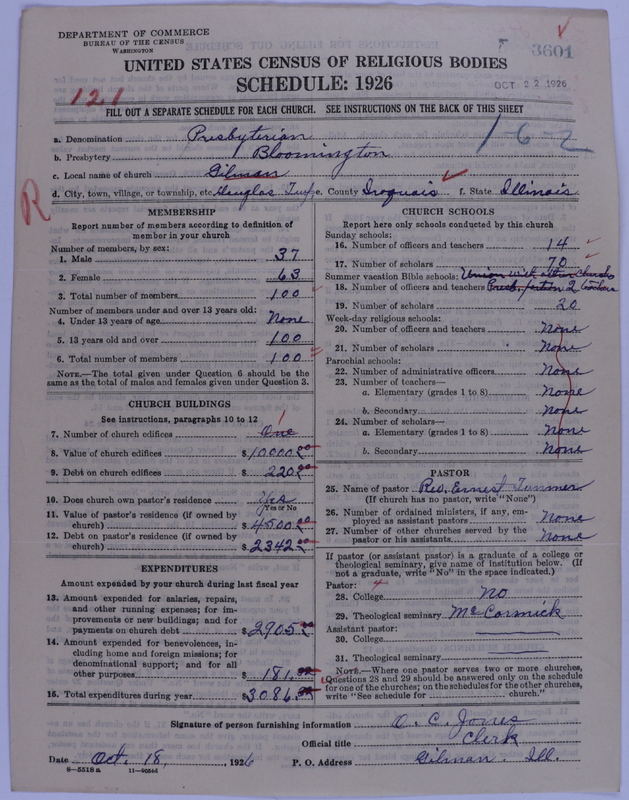 DEPARTMENT OF COMMERCE
BUREAU OF THE CENSUS
WASHINGTON
3601
UNITED STATES CENSUS OF RELIGIOUS BODIES
SCHEDULE: 1926
OCT 22 1926
121
FILL OUT A SEPARATE SCHEDULE FOR EACH CHURCH. SEE INSTRUCTIONS ON THE BACK OF THIS SHEET
1-6-2
a. Denomination Presbyterian
b. Presbytery Bloomington
c. Local name of church Gilman
R
d. City, town, village, or township, etc. Douglas Twp e. County Iroquois f. State Illinois
MEMBERSHIP
Report number of members according to definition of member in your church
Number of members, by sex:
1. Male 37
2. Female 63
3. Total number of members 100
Number of members under and over 13 years old:
4. Under 13 years of age None
5. 13 years old and over 100
6. Total number of members 100
NOTE.—The total given under Question 6 should be
same as the total of males and females given under Question 3.
CHURCH BUILDINGS
See instructions, paragraphs 10 to 12
7. Number of church edifices One
8. Value of church edifices $10000.00
9. Debt on church edifices $220.00
10. Does church own pastor's residence Yes
Yes or No
11. Value of pastor's residence (if owned by
church) $4500.00
12. Debt on pastor's residence (if owned by
church) $2342.00
EXPENDITURES
Amount expended by your church during last fiscal year
13. Amount expended for salaries, repairs,
and other running expenses; for im-
provements or new buildings; and for
payments on church debt $2905.00
14. Amount expended for benevolences, in-
cluding home and foreign missions; for
denominational support; and for all
other purposes $181.00
15. Total expenditures during year $3086.00
CHURCH SCHOOLS
Report here only schools conducted by this church
Sunday schools:
16. Number of officers and teachers 14
17. Number of scholars 70
Summer vacation Bible schools: Union with other Churches
18. Number of officers and teachers Presb. portion 2 teachers
19. Number of scholars 20
Week-day religious schools:
20. Number of officers and teachers None
21. Number of scholars None
Parochial schools:
22. Number of administrative officers None
23. Number of teachers—
a. Elementary (grades 1 to 8) None
b. Secondary None
24. Number of scholars—
a. Elementary (grades 1 to 8) None
b. Secondary None
PASTOR
25. Name of pastor Rev. Ernest
(If church has no pastor, write "None")
26. Number of ordained ministers, if any, em-
ployed as assistant pastors None
27. Number of other churches served by the
pastor or his assistants None
If pastor (or assistant pastor) is a graduate of a college or
theological seminary, give name of institution below. (If
not a graduate, write "No" in the space indicated.)
Pastor:
28. College No
29. Theological seminary McCormick
Assistant pastor:
30. College
31. Theological seminary
NOTE.—Where one pastor serves two or more churches,
Questions 28 and 29 should be answered only on the schedule
for one of the churches; on the schedules for the other churches,
write "See schedule for church."
Signature of person furnishing information O. C. Jones
Official title Clerk
Date Oct. 18, 1926 P. O. Address Gilman. Ill.
8-5518a 11-9054d